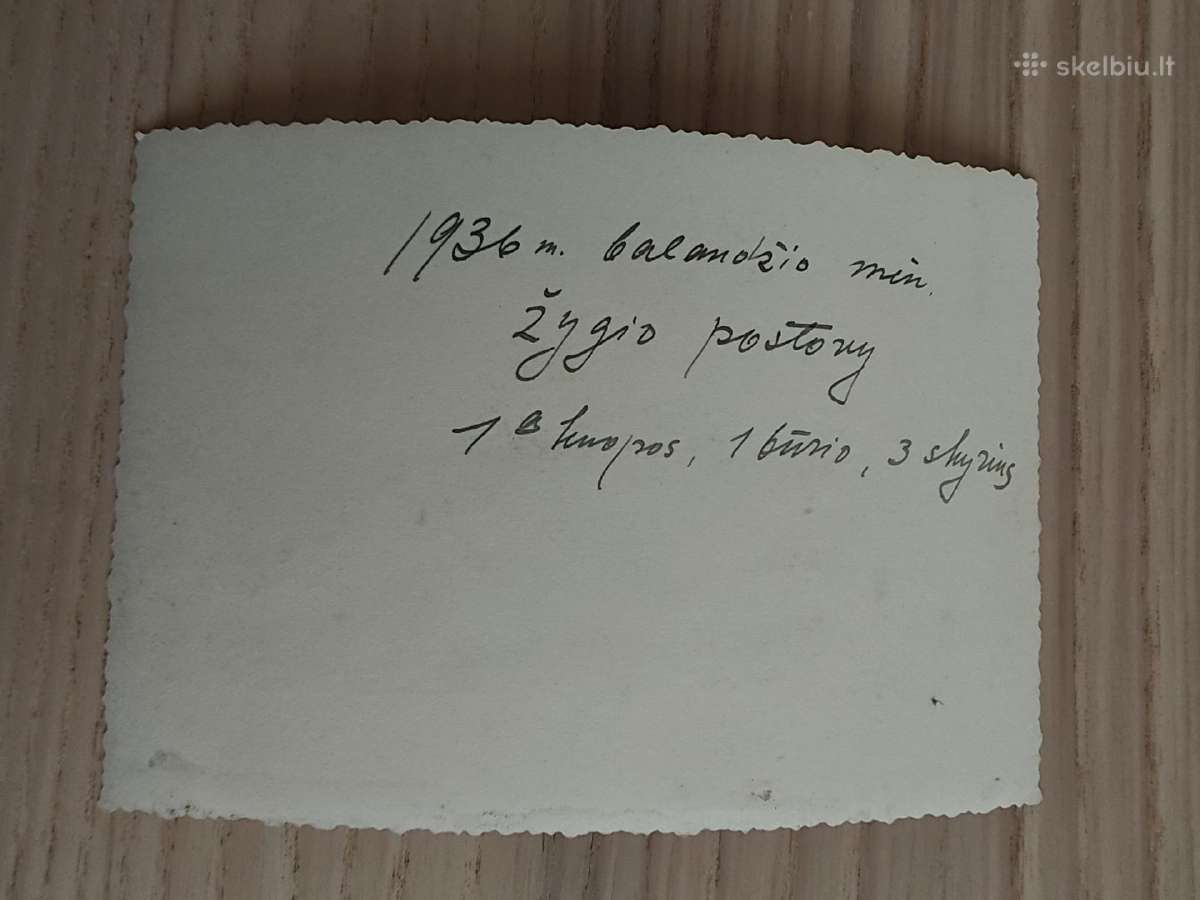 skelbiu.lt
1936 m. balandžio mėn.
Žygio pastovy
1 a kuopos, 1 būrio, 3 skyrius